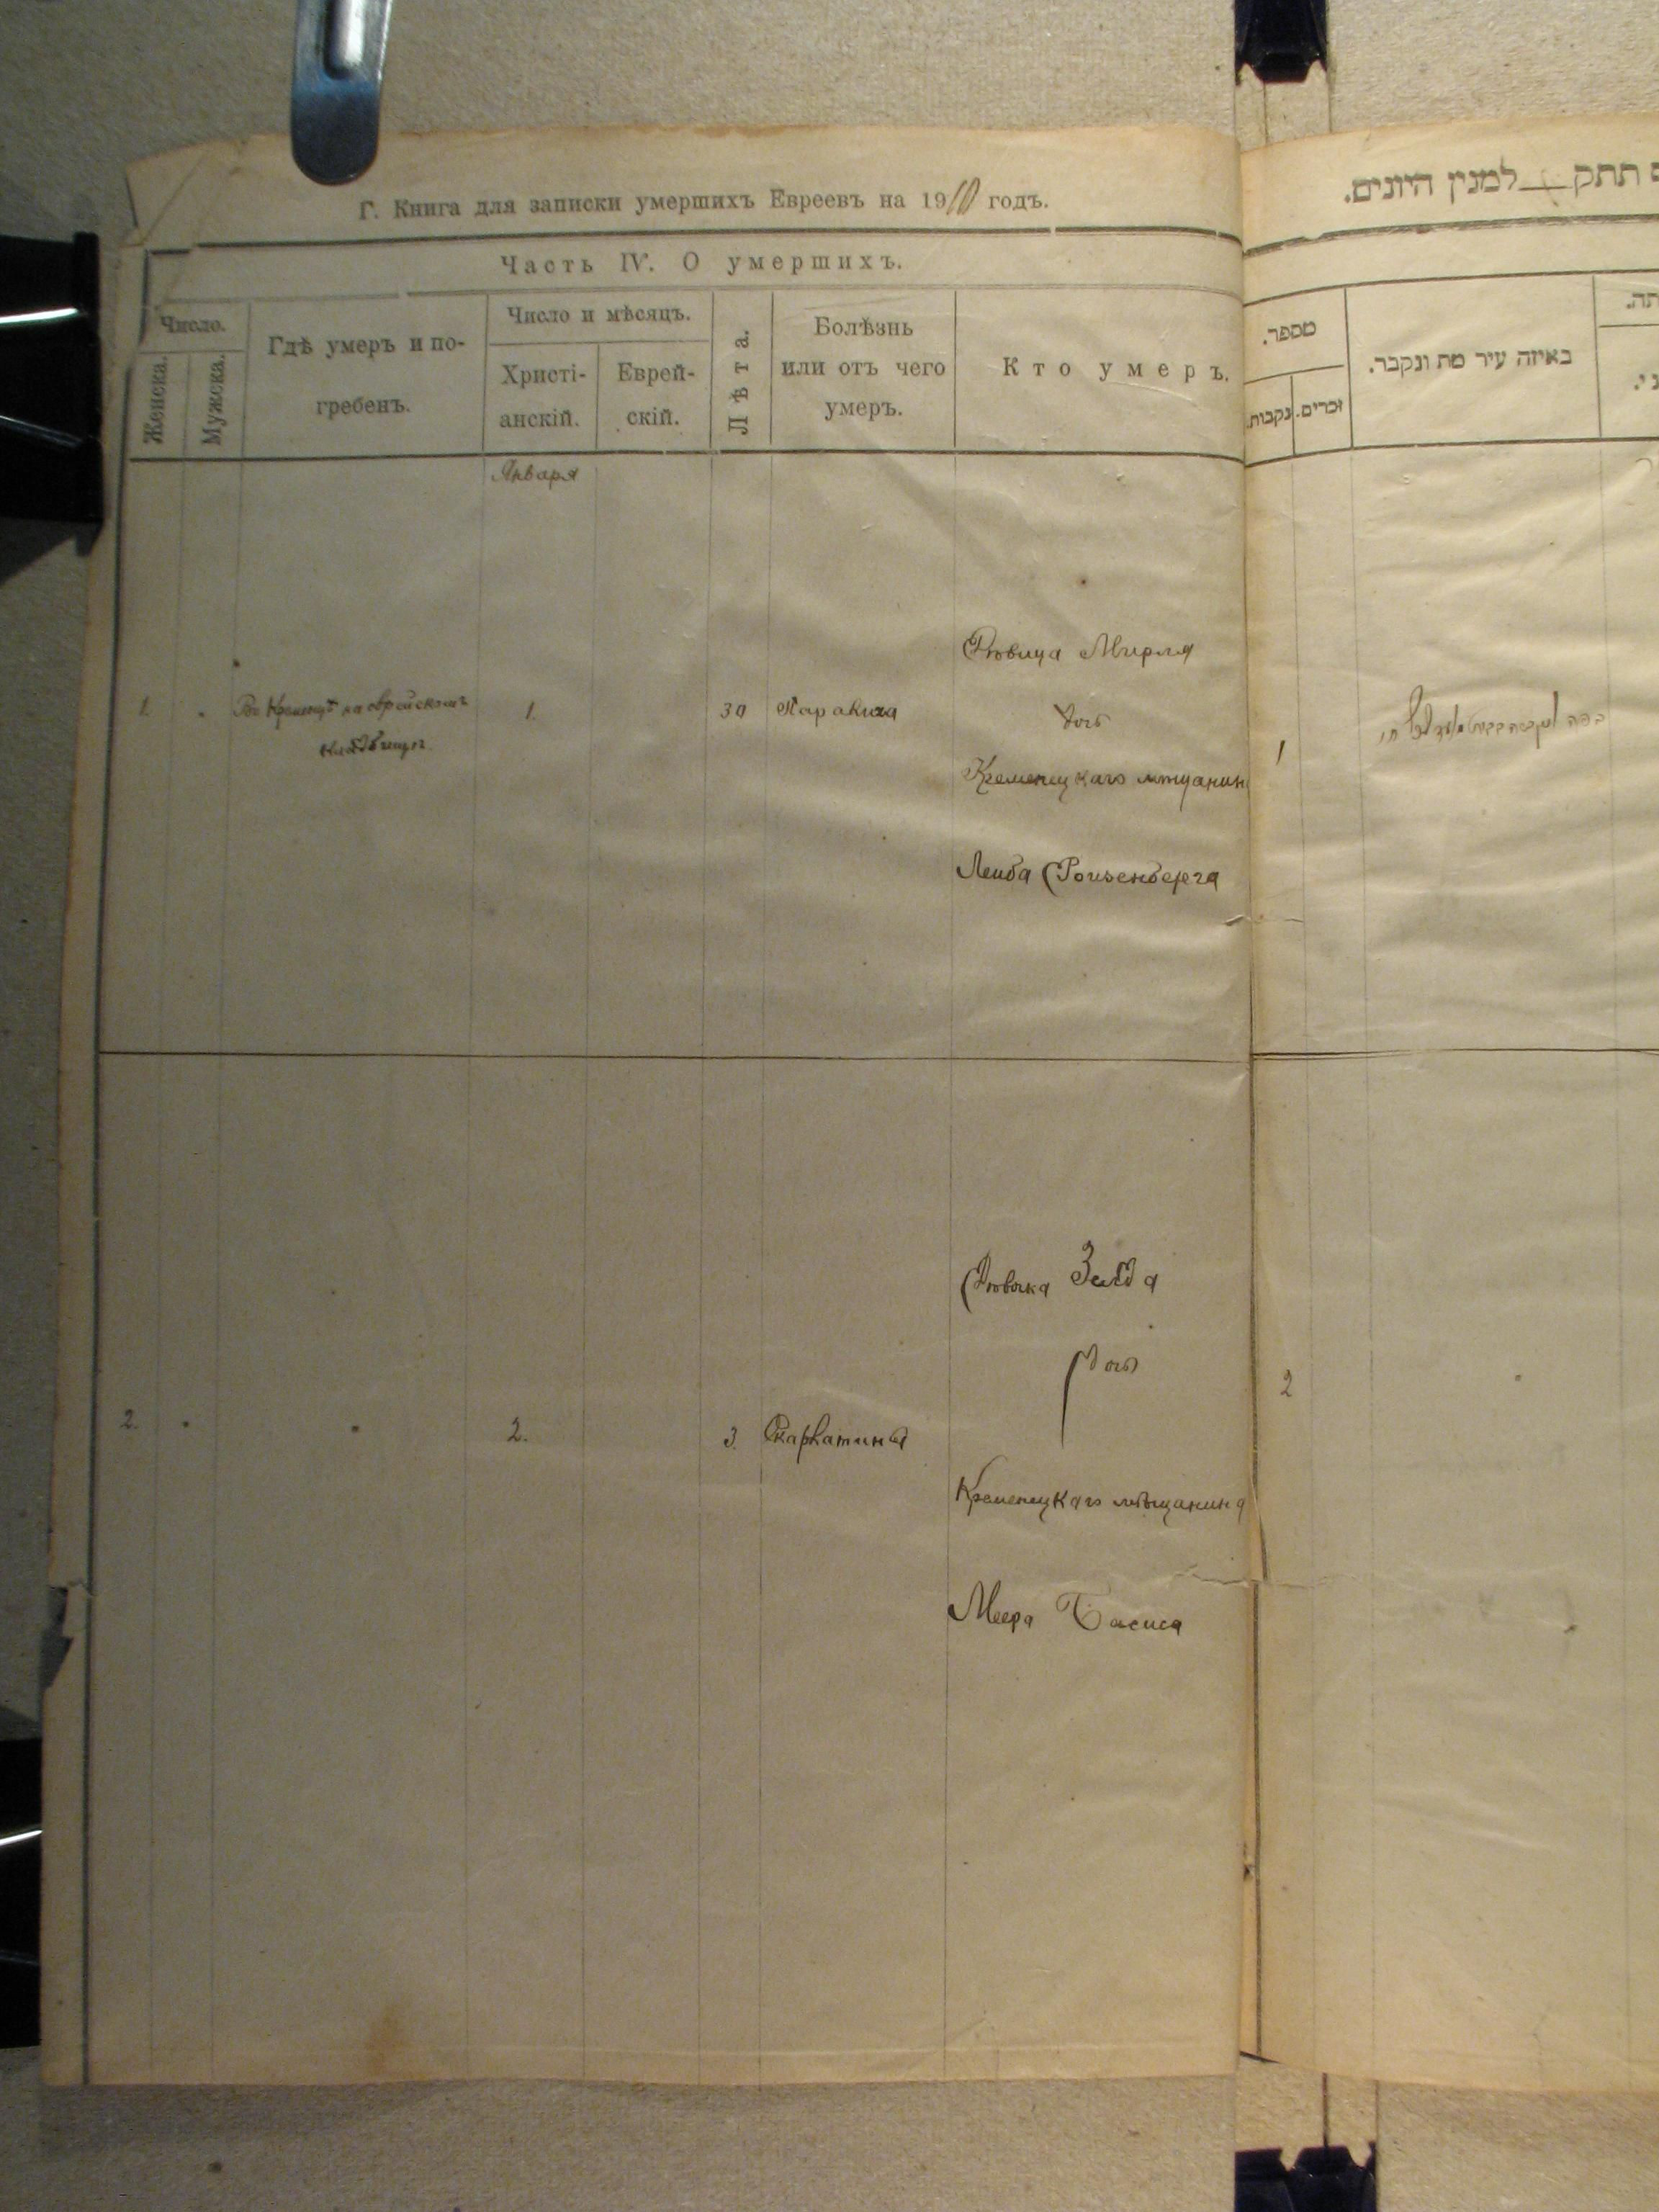 Г. Книга для записки умершихъ Евреевъ на 1910 годъ.
Часть IV. О умершихъ.
Число.
Женска.
Мужска.
Гдѣ умеръ и по-
гребенъ.
Число и мѣсяцъ.
Христі-
анскій.
Еврей-
скій.
Лѣта.
Болѣзнь
или отъ чего
умеръ.
Кто умеръ.
Января
1.
Въ Кременцѣ на еврейскомъ
кладбищѣ
1.
30
Дѣвица Мирля
дочь
Кременецкаго мѣщанин
Лейба Ройзенберга
2.
2.
3.
Скарлатины
Дѣвочка Зельда
дочь
Кременецкаго мѣщанина
Меера Басиса
תתק למנין היונים.
מספר.
נקבות.
זכרים.
באיזה עיר מת ונקבר.
תה.
1
2